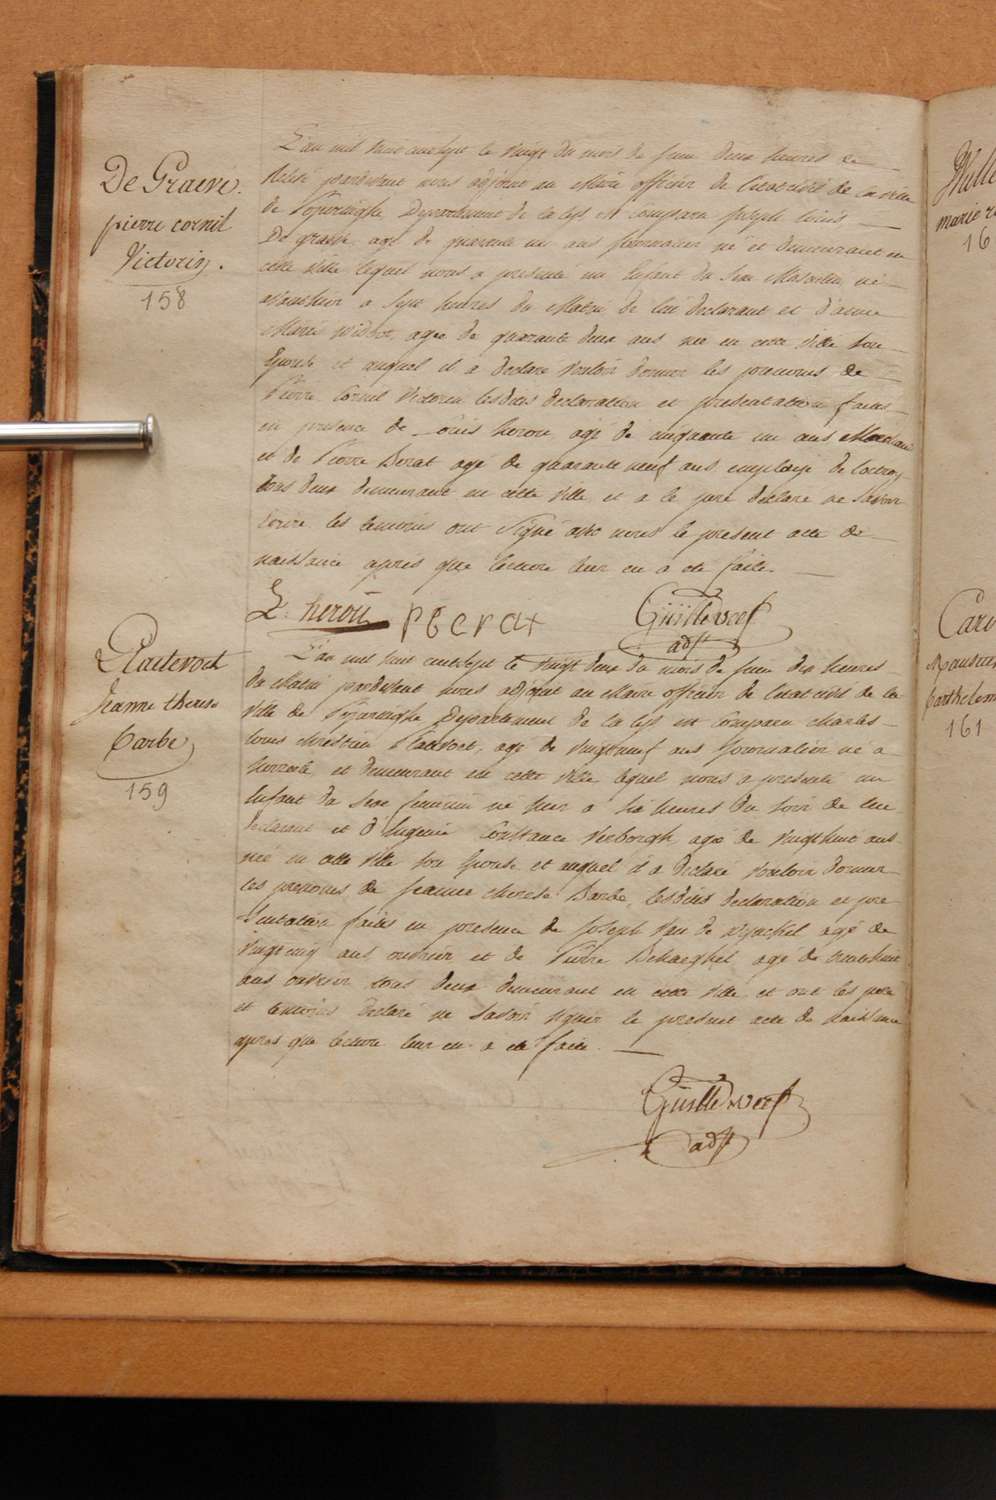 De Graeve
pierre cornil
Victorin.
158
L'an mil huit cent sept le vingt du mois de juin deux heures de
relevé pardevant nous adjoint au Maire officier de l'état civil de la ville
de Poperinghe Departement de la Lys est comparu joseph louis
De graeve agé de quarante un ans journalier né et demeurant en
cette ville lequel nous a presenté un Enfant du sexe Masculin né
a sept heures du Matin de lui declarant et d'anne
Marie agée de quarante deux ans née en cette ville son
Epouse et auquel il a declaré vouloir donner les prenoms de
Pierre Cornil Victorin lesdites declaration et presentation faites
en presence de Louis herou agé de cinquante un ans
et de Pierre Berat agé de quarante neuf ans employé de l'octroy
tous deux demeurant en cette ville et a le pere declaré ne savoir
ecrire les temoins ont signé avec nous le present acte de
naissance après que lecture leur en a été faite.
L: herou PBerat
adjt
jeanne therese
Barbe
159
L'an mil huit cent sept le vingt deux du mois de juin dix heures
du Matin pardevant nous adjoint au Maire officier de l'état civil de la
ville de Poperinghe Departement de la Lys est comparu charles
louis chretien agé de vingt neuf ans journalier né a
et demeurant en cette ville lequel nous a presenté un
Enfant du sexe feminin né hier a six heures du soir de lui
declarant et d'Eugenie Constance Verborgh agée de vingt huit ans
née en cette ville son Epouse et auquel il a declaré vouloir donner
les prenoms de jeanne therese Barbe, lesdites declaration et pre
sentation faites en presence de joseph Van de agé de
vingt cinq ans ouvrier et de Pierre Dehaeghel agé de trente huit
ans ouvrier tous deux demeurant en cette ville et ont les pere
et temoins declaré ne savoir signer le present acte de naissance
après que lecture leur en a été faite.
adjt
marie
16
161